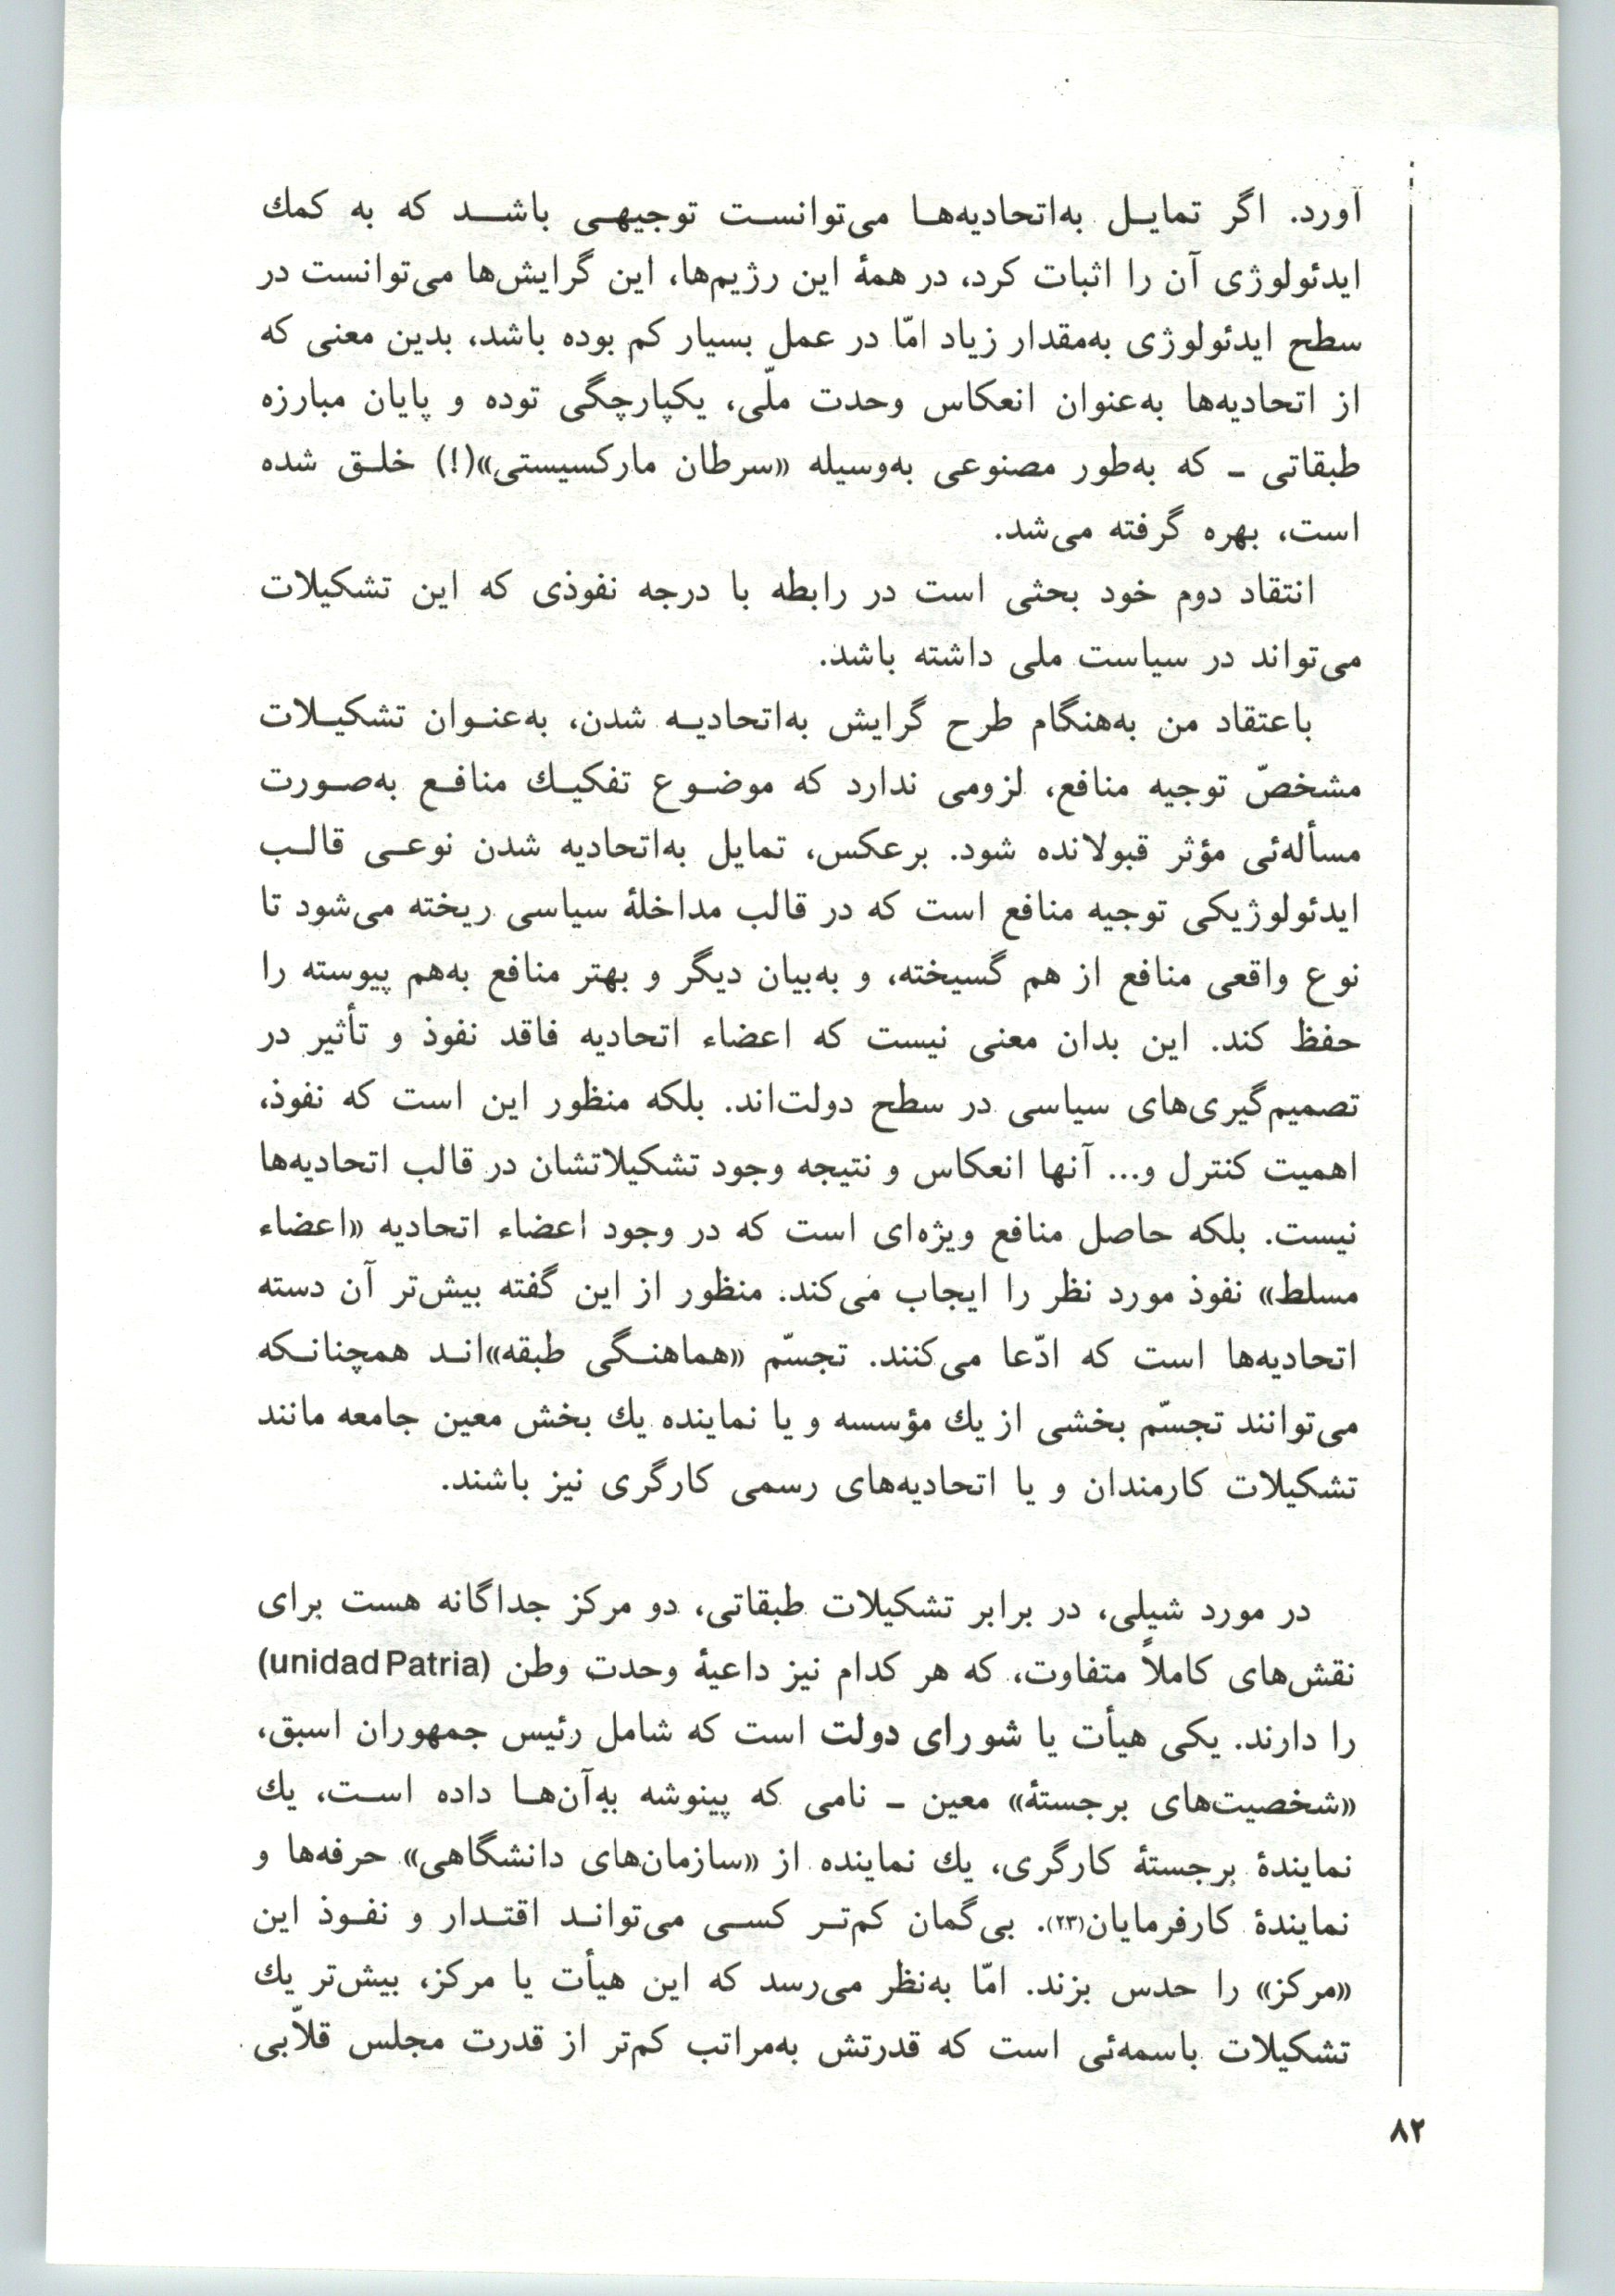 آورد. اگر تمایل به‌اتحادیه‌ها می‌توانست توجیهی باشد که به کمك
ایدئولوژی آن را اثبات کرد، در همهٔ این رژیم‌ها، این گرایش‌ها می‌توانست در
سطح ایدئولوژی به‌مقدار زیاد امّا در عمل بسیار کم بوده باشد، بدین معنی که
از اتحادیه‌ها به‌عنوان انعکاس وحدت ملّی، یکپارچگی توده و پایان مبارزه
طبقاتی ـ که به‌طور مصنوعی به‌وسیله «سرطان مارکسیستی»(!) خلق شده
است، بهره گرفته می‌شد.
انتقاد دوم خود بحثی است در رابطه با درجه نفوذی که این تشکیلات
می‌تواند در سیاست ملی داشته باشد.
باعتقاد من به‌هنگام طرح گرایش به‌اتحادیه شدن، به‌عنوان تشکیلات
مشخصّ توجیه منافع، لزومی ندارد که موضوع تفکیك منافع به‌صورت
مسأله‌ئی مؤثر قبولانده شود. برعکس، تمایل به‌اتحادیه شدن نوعی قالب
ایدئولوژیکی توجیه منافع است که در قالب مداخلهٔ سیاسی ریخته می‌شود تا
نوع واقعی منافع از هم گسیخته، و به‌بیان دیگر و بهتر منافع به‌هم پیوسته را
حفظ کند. این بدان معنی نیست که اعضاء اتحادیه فاقد نفوذ و تأثیر در
تصمیم‌گیری‌های سیاسی در سطح دولت‌اند. بلکه منظور این است که نفوذ،
اهمیت کنترل و... آنها انعکاس و نتیجه وجود تشکیلاتشان در قالب اتحادیه‌ها
نیست. بلکه حاصل منافع ویژه‌ای است که در وجود اعضاء اتحادیه «اعضاء
مسلط» نفوذ مورد نظر را ایجاب می‌کند. منظور از این گفته بیش‌تر آن دسته
اتحادیه‌ها است که ادّعا می‌کنند. تجسّم «هماهنگی طبقه»اند همچنانکه
می‌توانند تجسّم بخشی از یك مؤسسه و یا نماینده یك بخش معین جامعه مانند
تشکیلات کارمندان و یا اتحادیه‌های رسمی کارگری نیز باشند.
در مورد شیلی، در برابر تشکیلات طبقاتی، دو مرکز جداگانه هست برای
نقش‌های کاملاً متفاوت، که هر کدام نیز داعیهٔ وحدت وطن (unidad Patria)
را دارند. یکی هیأت یا شورای دولت است که شامل رئیس جمهوران اسبق،
«شخصیت‌های برجستهٔ» معین ـ نامی که پینوشه به‌آن‌ها داده است، یك
نمایندهٔ برجستهٔ کارگری، یك نماینده از «سازمان‌های دانشگاهی» حرفه‌ها و
نمایندهٔ کارفرمایان(۲۳). بی‌گمان کم‌تر کسی می‌تواند اقتدار و نفوذ این
«مرکز» را حدس بزند. امّا به‌نظر می‌رسد که این هیأت یا مرکز، بیش‌تر یك
تشکیلات باسمه‌ئی است که قدرتش به‌مراتب کم‌تر از قدرت مجلس قلاّبی
۸۲